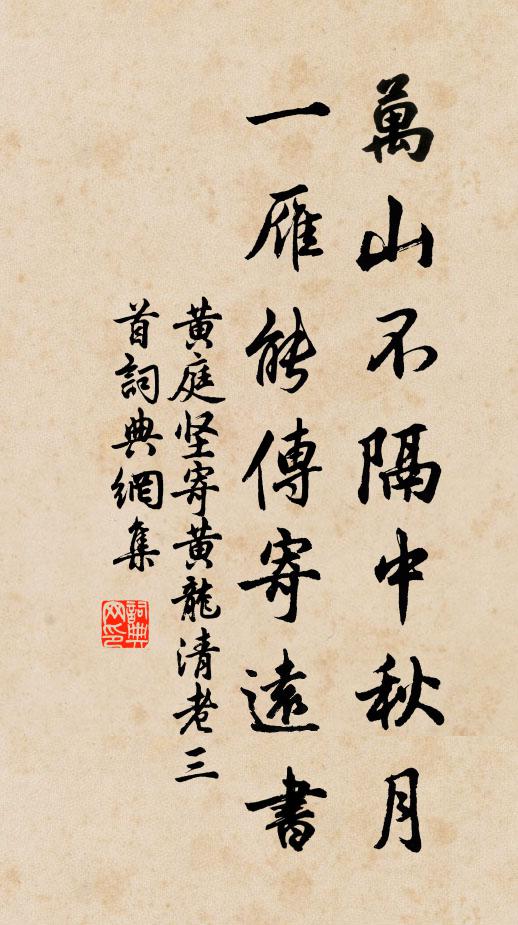 萬山不隔中秋月
一雁能傳寄遠書
黄庭坚寄黄龍清老三
首詞典網集
詞典
网印